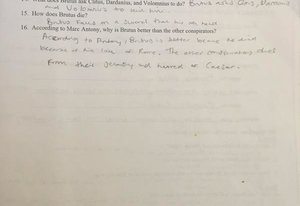 14. What does Brutus ask Clitus, Dardanius, and Volumnius to do? Brutus asks Clitus, Dardanius
and Volumnius to kill him
15. How does Brutus die?
Brutus Falls on a Sword that his men held
16. According to Marc Antony, why is Brutus better than the other conspirators?
According to Antony, Brutus is better because he died
because of his love of Rome. The other conspirators died
From their Jealousy and hatred of Caesar.